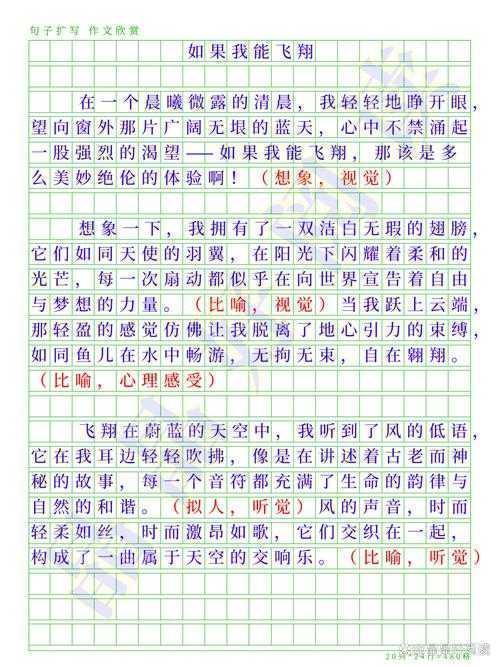 句子扩写 作文欣赏
如果我能飞翔
在一个晨曦微露的清晨，我轻轻地睁开眼，
望向窗外那片广阔无垠的蓝天，心中不禁涌起
一股强烈的渴望——如果我能飞翔，那该是多
么美妙绝伦的体验啊！（想象，视觉）
想象一下，我拥有了一双洁白无瑕的翅膀，
它们如同天使的羽翼，在阳光下闪耀着柔和的
光芒，每一次扇动都似乎在向世界宣告着自由
与梦想的力量。（比喻，视觉）当我跃上云端，
那轻盈的感觉仿佛让我脱离了地心引力的束缚，
如同鱼儿在水中畅游，无拘无束，自在翱翔。
（比喻，心理感受）
飞翔在蔚蓝的天空中，我听到了风的低语，
它在我耳边轻轻吹拂，像是在讲述着古老而神
秘的故事，每一个音符都充满了生命的韵律与
自然的和谐。（拟人，听觉）风的声音，时而
轻柔如丝，时而激昂如歌，它们交织在一起，
构成了一曲属于天空的交响乐。（比喻，听觉）
20列*24行=480格